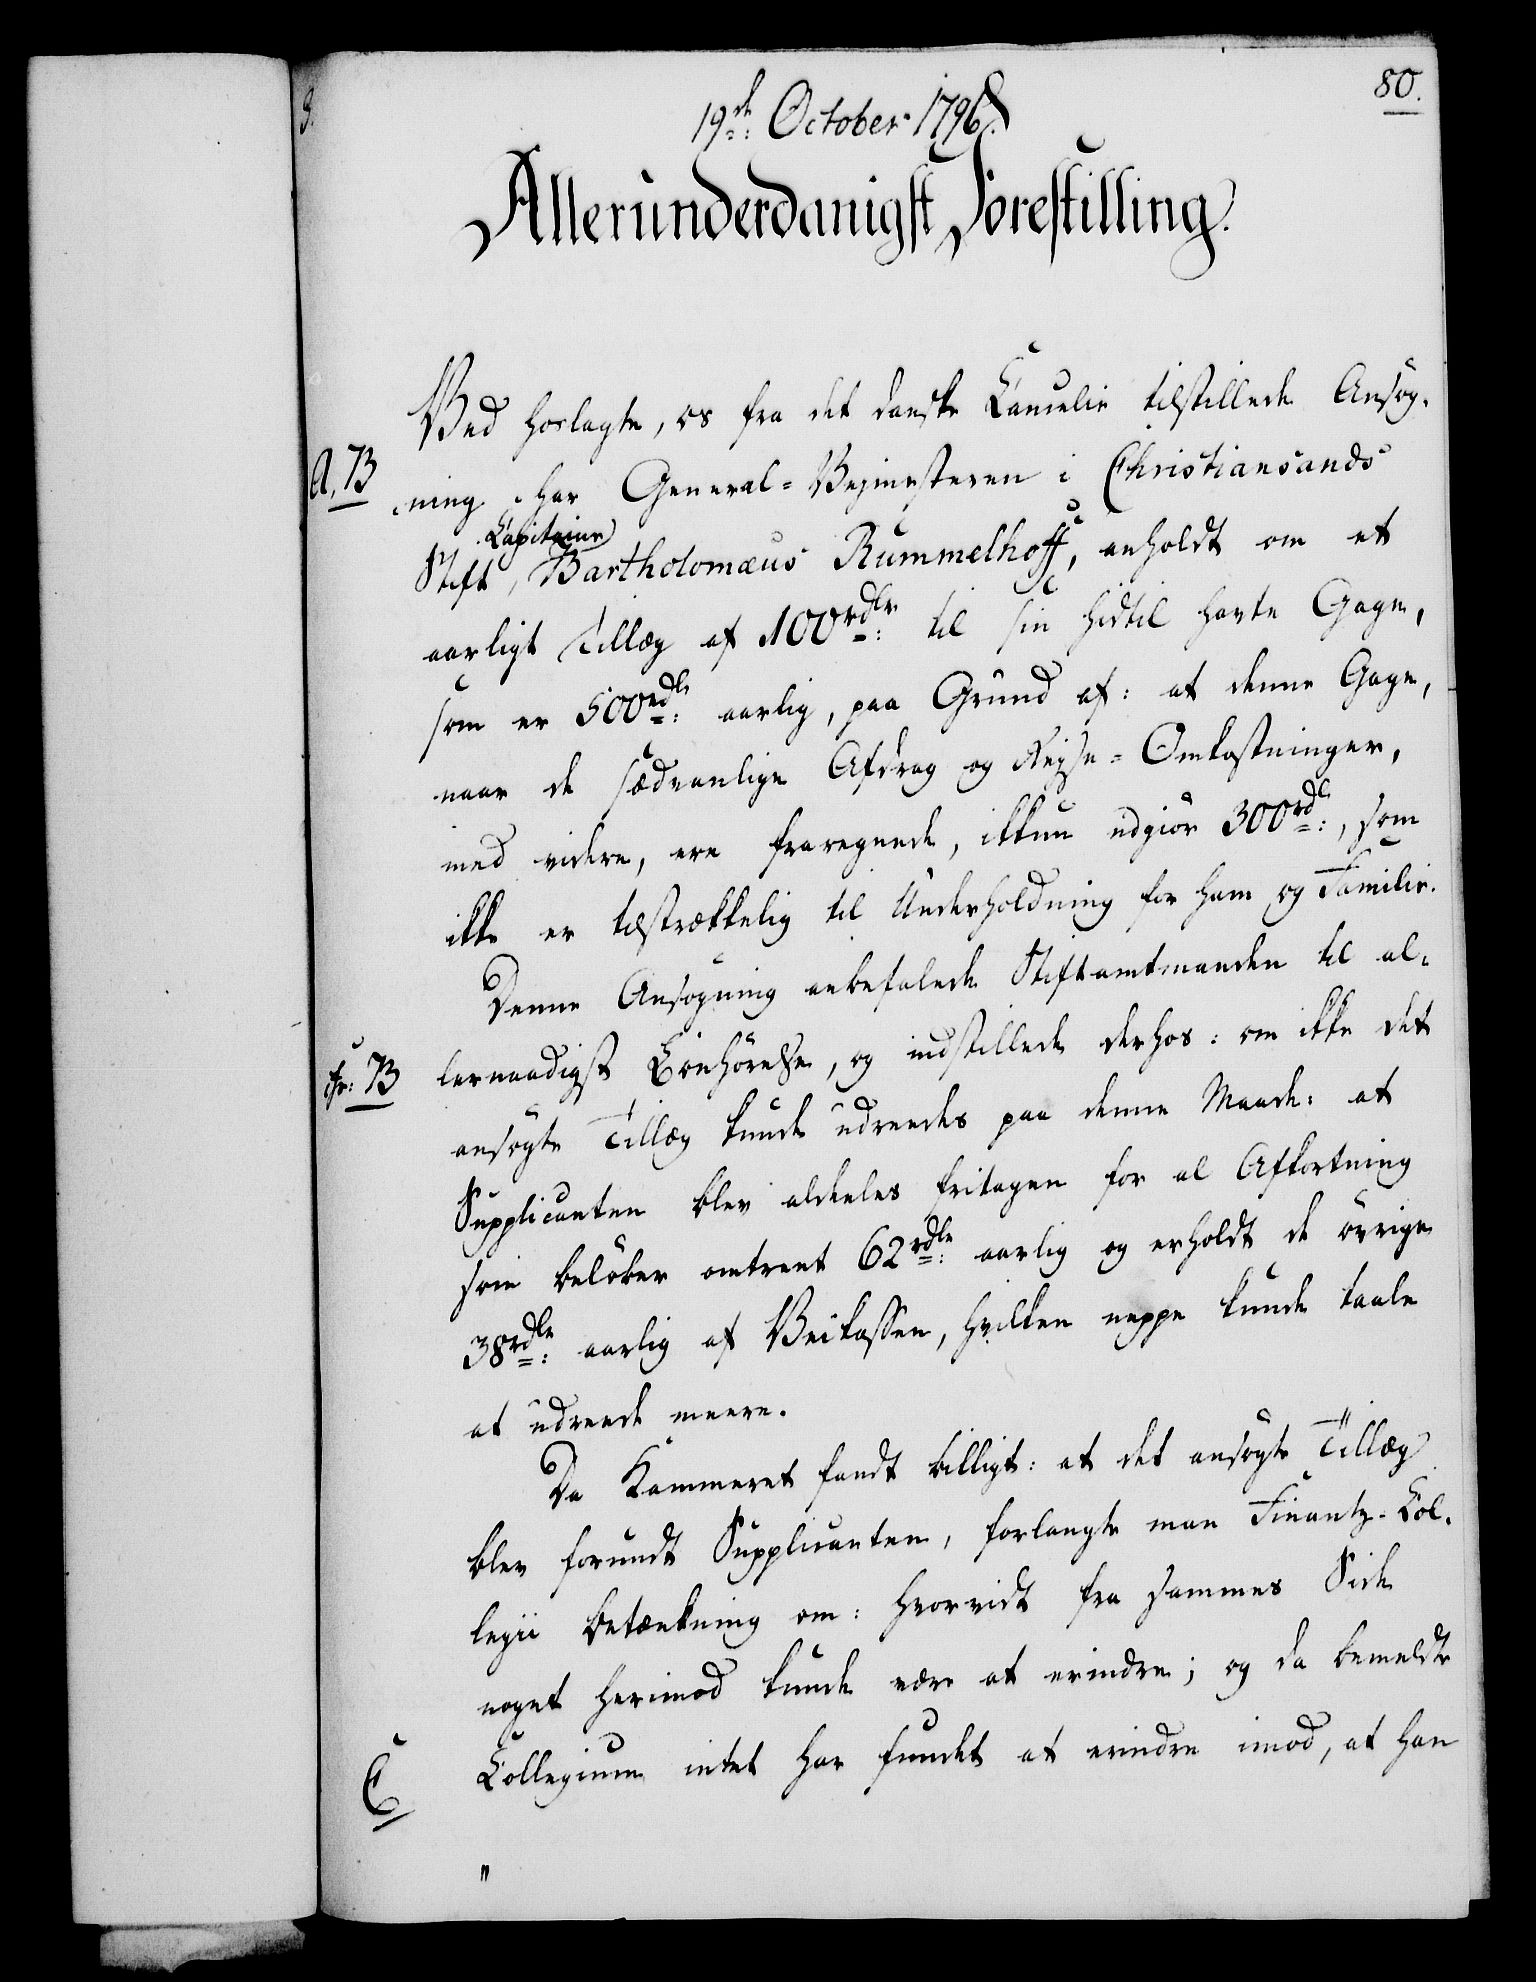 80.
19de: October 1796.
Allerunderdanigst Forestilling.
Ved hoslagte, os fra det danske Cancelie tilstillede Ansøg-
A, B
ning har General-Vejmesteren i Christiansands
Capitaine
Stift, Bartholomæus Rummelhoff, anholdt om et
aarligt Tillæg af 100 rdlr: til sin hidtil havte Gage,
som er 500 rdlr: aarlig, paa Grund af: at denne Gage,
naar de sædvanlige Afdrag og Rejse-Omkostninger,
med videre, ere fraregnede, ikkun udgiør 300 rdl:, som
ikke er tilstrækkelig til Underholdning for ham og Familie.
Denne Ansøgning anbefalede Stiftamtmanden til al-
cfr: B
lernaadigst Bønhørelse, og indstillede derhos: om ikke det
ansøgte Tillæg kunde udreedes paa denne Maade: at
Supplicanten blev aldeeles fritagen for al Afkortning
som beløber omtrent 62 rdlr: aarlig og erholdt de øvrige
38 rdlr: aarlig af Veikassen, hvilken neppe kunde taale
at udreede meere.
Da Kammeret fandt billigt: at det ansøgte Tillæg
blev forundt Supplicanten, forlangte man Finantz-Col-
legii Betænkning om: hvorvidt fra sammes Side
noget herimod kunde være at erindre; og da bemeldte
C
Collegium intet har fundet at erindre imod, at han
"